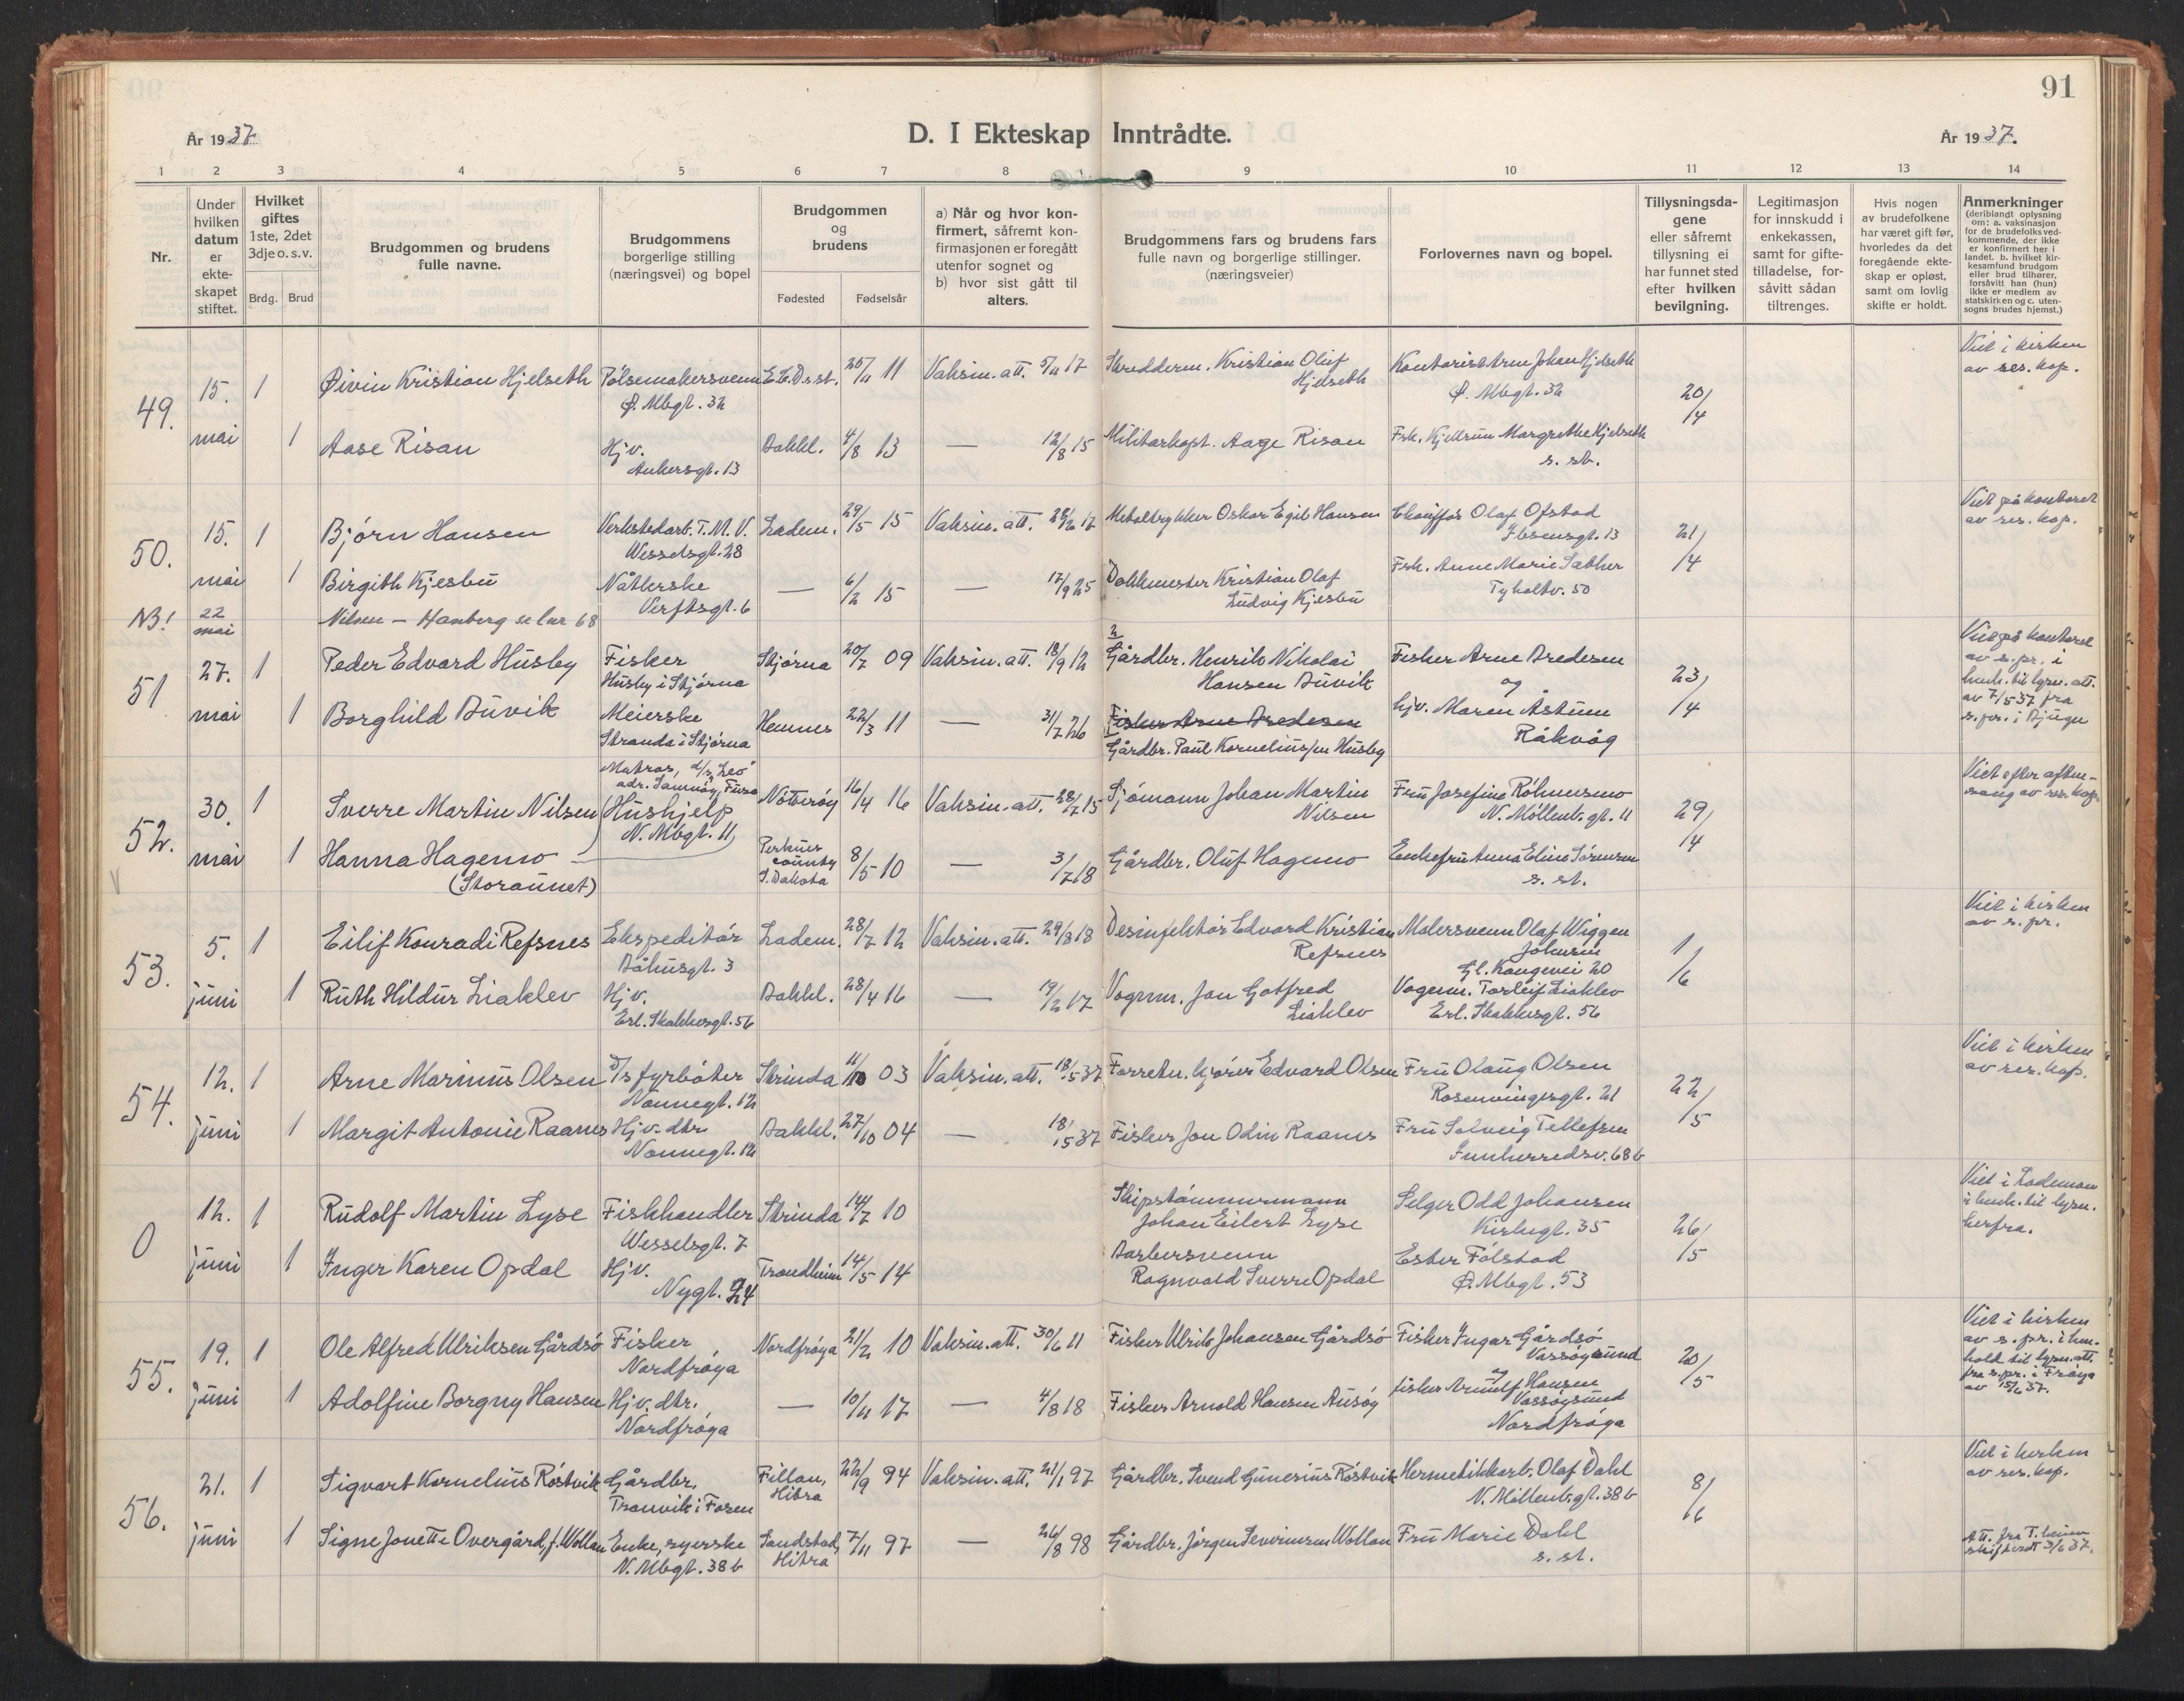 91
År 1937.
D. I Ekteskap Inntrådte.
År 1937.
1 2 3 4 5 6 7 8 9 10 11 12 13 14
Nr.
Under hvilken datum er ekteskapet stiftet.
Hvilket giftes 1ste, 2det 3dje o. s. v.
Brdg. Brud
Brudgommen og brudens fulle navne.
Brudgommens borgerlige stilling (næringsvei) og bopel
Brudgommen og brudens
Fødested Fødselsår
a) Når og hvor konfirmert, såfremt konfirmasjonen er foregått utenfor sognet og b) hvor sist gått til alters.
Brudgommens fars og brudens fars fulle navn og borgerlige stillinger. (næringsveier)
Forlovernes navn og bopel.
Tillysningsdagene eller såfremt tillysning ei har funnet sted efter hvilken bevilgning.
Legitimasjon for innskudd i enkekassen, samt for giftetilladelse, forsåvitt sådan tiltrenges.
Hvis nogen av brudefolkene har været gift før, hvorledes da det foregående ekteskap er opløst, samt om lovlig skifte er holdt.
Anmerkninger (deriblandt oplysning om: a. vaksinasjon for de brudefolks vedkommende, der ikke er konfirmert her i landet. b. hvilket kirkesamfund brudgom eller brud tilhører, forsåvitt han (hun) ikke er medlem av statskirken og c. utensogns brudes hjemst.)
49. 15. mai 1 Øivin Kristian Hjelseth Pølsemakersvenn Ø. Mbgt. 32 25/11 11 Vaksin. att. 5/11 17 Skredderm. Kristian Oluf Hjelseth Kontorist Arne Johan Hjelseth Ø. Mbgt. 32 20/4 Viet i kirken av res. kap.
1 Aase Risan Hjv. Ankersgt. 13 Bakkl. 4/8 13 — 12/8 15 Militærkapt. Aage Risan Frk. Kjellrun Margrethe Hjelseth s. st.
50. 15. mai 1 Bjørn Hansen Verkstedarb. T. M. V. Wesselsgt. 28 Ladem. 29/5 15 Vaksin. att. Metaltrykker Oskar Egil Hansen Chauffør Olaf Ofstad Ibsensgt. 13 21/4 Viet på kontoret av res. kap.
1 Birgith Kjesbu Nåtlerske Verftsgt. 6 — 6/2 15 — 17/9 25 Dokkmester Kristian Olaf Ludvig Kjesbu Frk. Anne Marie Sæther Tyholtv. 50
NB! 22 mai Nilsen — Hanberg se lnr 68
51 27. mai 1 Peder Edvard Husby Fisker Husby i Stjørna Stjørna 20/7 09 Vaksin. att. 18/9 12 2 Gårdbr. Henrik Nikolai Hansen Buvik Fisker Arne Bredesen og 23/4 Viet på kontoret av s. pr. i henh. til lysn. att. av 7/5 37 fra s. pr. i Bjugn
1 Borghild Buvik Meierske Stranda i Stjørna Hemnes 22/3 11 — 31/7 26 Fisker Arne Bredesen Gårdbr. Paul Kornelius/en Husby hjv. Maren Åstum Råkvåg
52. 30. mai 1 Sverre Martin Nilsen Matros, d/s "Leo" Nøtterøy 16/4 16 Vaksin. att. 28/7 15 Sjømann Johan Martin Nilsen Fru Josefine N. Møllenb. gt. 11 29/4 Viet efter aftensang av res. kap.
1 Hanna Hagemo (Storaunet) Hushjelp N. Mbgt. 11 Perkins county S. Dakota 8/5 10 — 3/7 18 Gårdbr. Oluf Hagemo Enkefru Anna Eline Sørensen s. st.
53. 5. juni 1 Eilif Konradi Refsnes Ekspeditør Båhusgt. 3 Ladem. 28/7 12 Vaksin. att. 29/8 18 Desinfektør Edvard Kristian Refsnes Malersvenn Olaf Wiggen Johnsen Gl. Kongevei 20 1/6 Viet i kirken av s. pr.
1 Ruth Hildur Liaklev Hjv. Erl. Skakkesgt. 56 Bakkl. 28/4 16 — 19/2 17 Vognm. Jon Gotfred Liaklev Vognm. Torleif Liaklev Erl. Skakkesgt. 56
54. 12. juni 1 Arne Marinus Olsen d/s fyrbøter Nonnegt. 12 Strinda 11/10 03 Vaksin. att. 18/5 37 Forretn. kjører Edvard Olsen Fru Olaug Olsen Rosenvingesgt. 21 22/5 Viet i kirken av res. kap.
1 Margit Antonie Raanes Hjv. dtr. Nonnegt. 12 Bakkl. 27/10 04 — 18/5 37 Fisker Jon Odin Raanes Fru Solveig Tellefsen Innherredsv. 68 b
0 12. juni 1 Rudolf Martin Lyse Fiskhandler Wesselsgt. 7 Strinda 14/7 10 Skipstømmermann Johan Eilert Lyse Selger Odd Johansen Kirkegt. 35 26/5 Viet i Lademoen i henh. til lysn. herfra.
1 Inger Karen Opdal Hjv. Nygt. 24 Trondheim 14/5 14 Barbersvenn Ragnvald Sverre Opdal Ester Følstad Ø. Mbgt. 53
55. 19. juni 1 Ole Alfred Ulriksen Gårdsø Fisker Nordfrøya Nordfrøya 21/2 10 Vaksin. att. 30/6 11 Fisker Ulrik Johansen Gårdsø Fisker Ingar Gårdsø Vassøysund og 20/5 Viet i kirken av s. pr. i henhold til lysn. att. fra s. pr. i Frøya
1 Adolfine Borgny Hansen Hjv. dtr. Nordfrøya — 10/11 17 — 4/8 18 Fisker Arnold Hansen Ausøy fisker Arnulf Hansen Vassøysund Nordfrøya
56. 21. juni 1 Sigvart Kornelius Røstvik Gårdbr. Tranvik i Fosen Fillan, Hitra 22/9 94 Vaksin. att. 21/1 97 Gårdbr. Svend Gunerius Røstvik Hermetikkarb. Olaf Dahl N. Møllenb. gt. 38 b 8/6 Viet i kirken av res. kap.
1 Signe Jonette Overgård, f. Wollan Enke, syerske N. Mbgt. 38 b Sandstad, Hitra 7/11 97 — 26/8 98 Gårdbr. Jørgen Severinsen Wollan Fru Marie Dahl s. st. Att. fra T. heim skifterett 3/6 37.